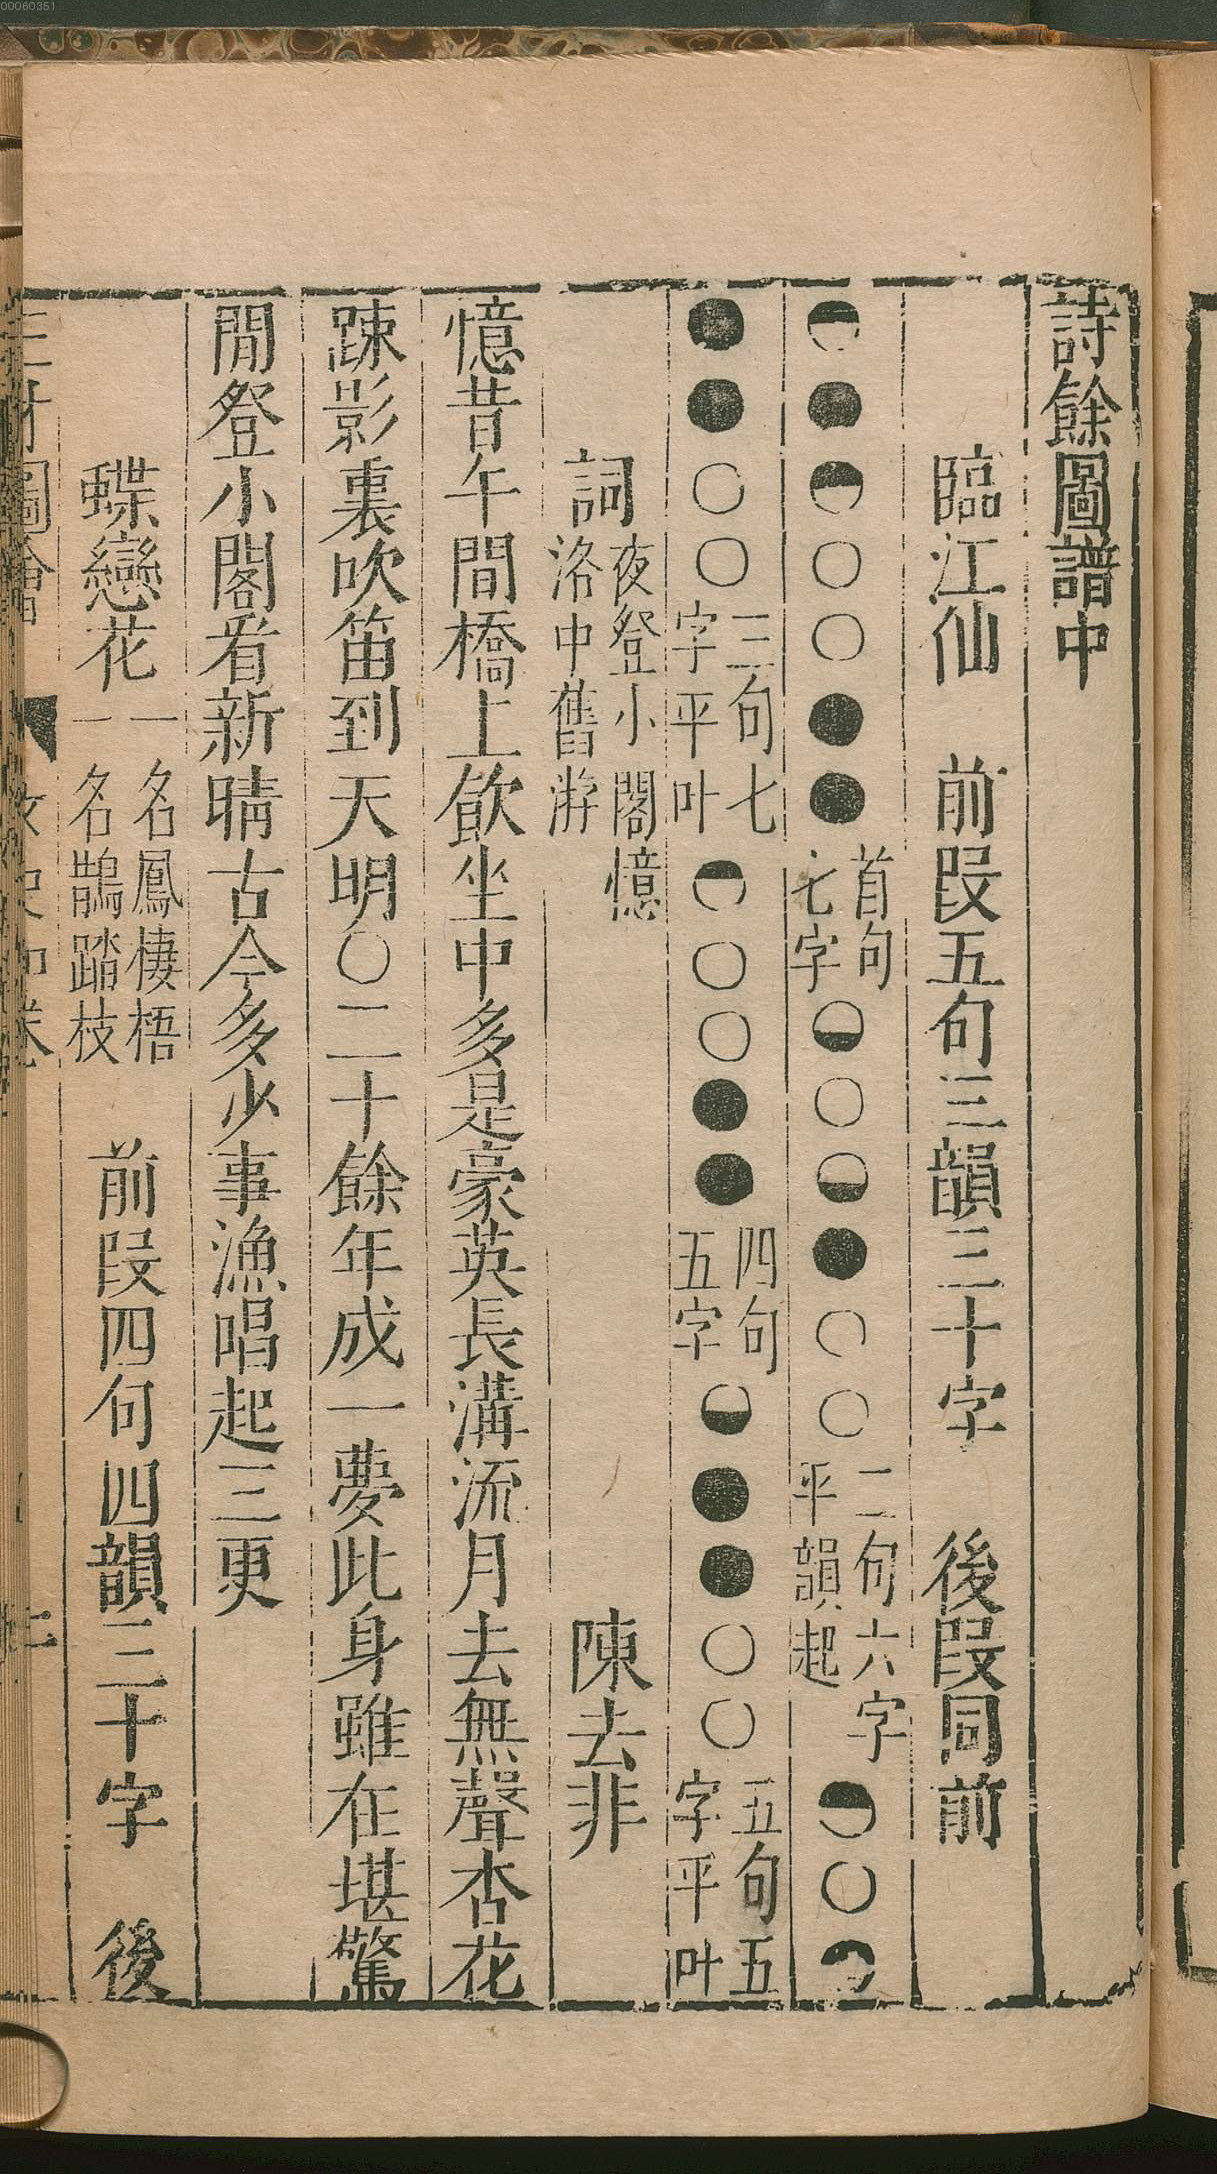 詩餘圖譜中
臨江仙　前段五句三韻三十字　後段同前
◓●◓○○●●首句七字◒○◒●○○二句六字平韻起◓○◓
●●○○三句七字平叶◓○○●●四句五字◒●●○○五句五字平叶
詞夜登小閣憶洛中舊游　陳去非
憶昔午間橋上飲坐中多是豪英長溝流月去無聲杏花
踈影裏吹笛到天明○二十餘年成一夢此身雖在堪驚
閒登小閣看新晴古今多少事漁唱起三更
蝶戀花一名鳳棲梧一名鵲踏枝　前段四句四韻三十字　後
三才圖會
00060351